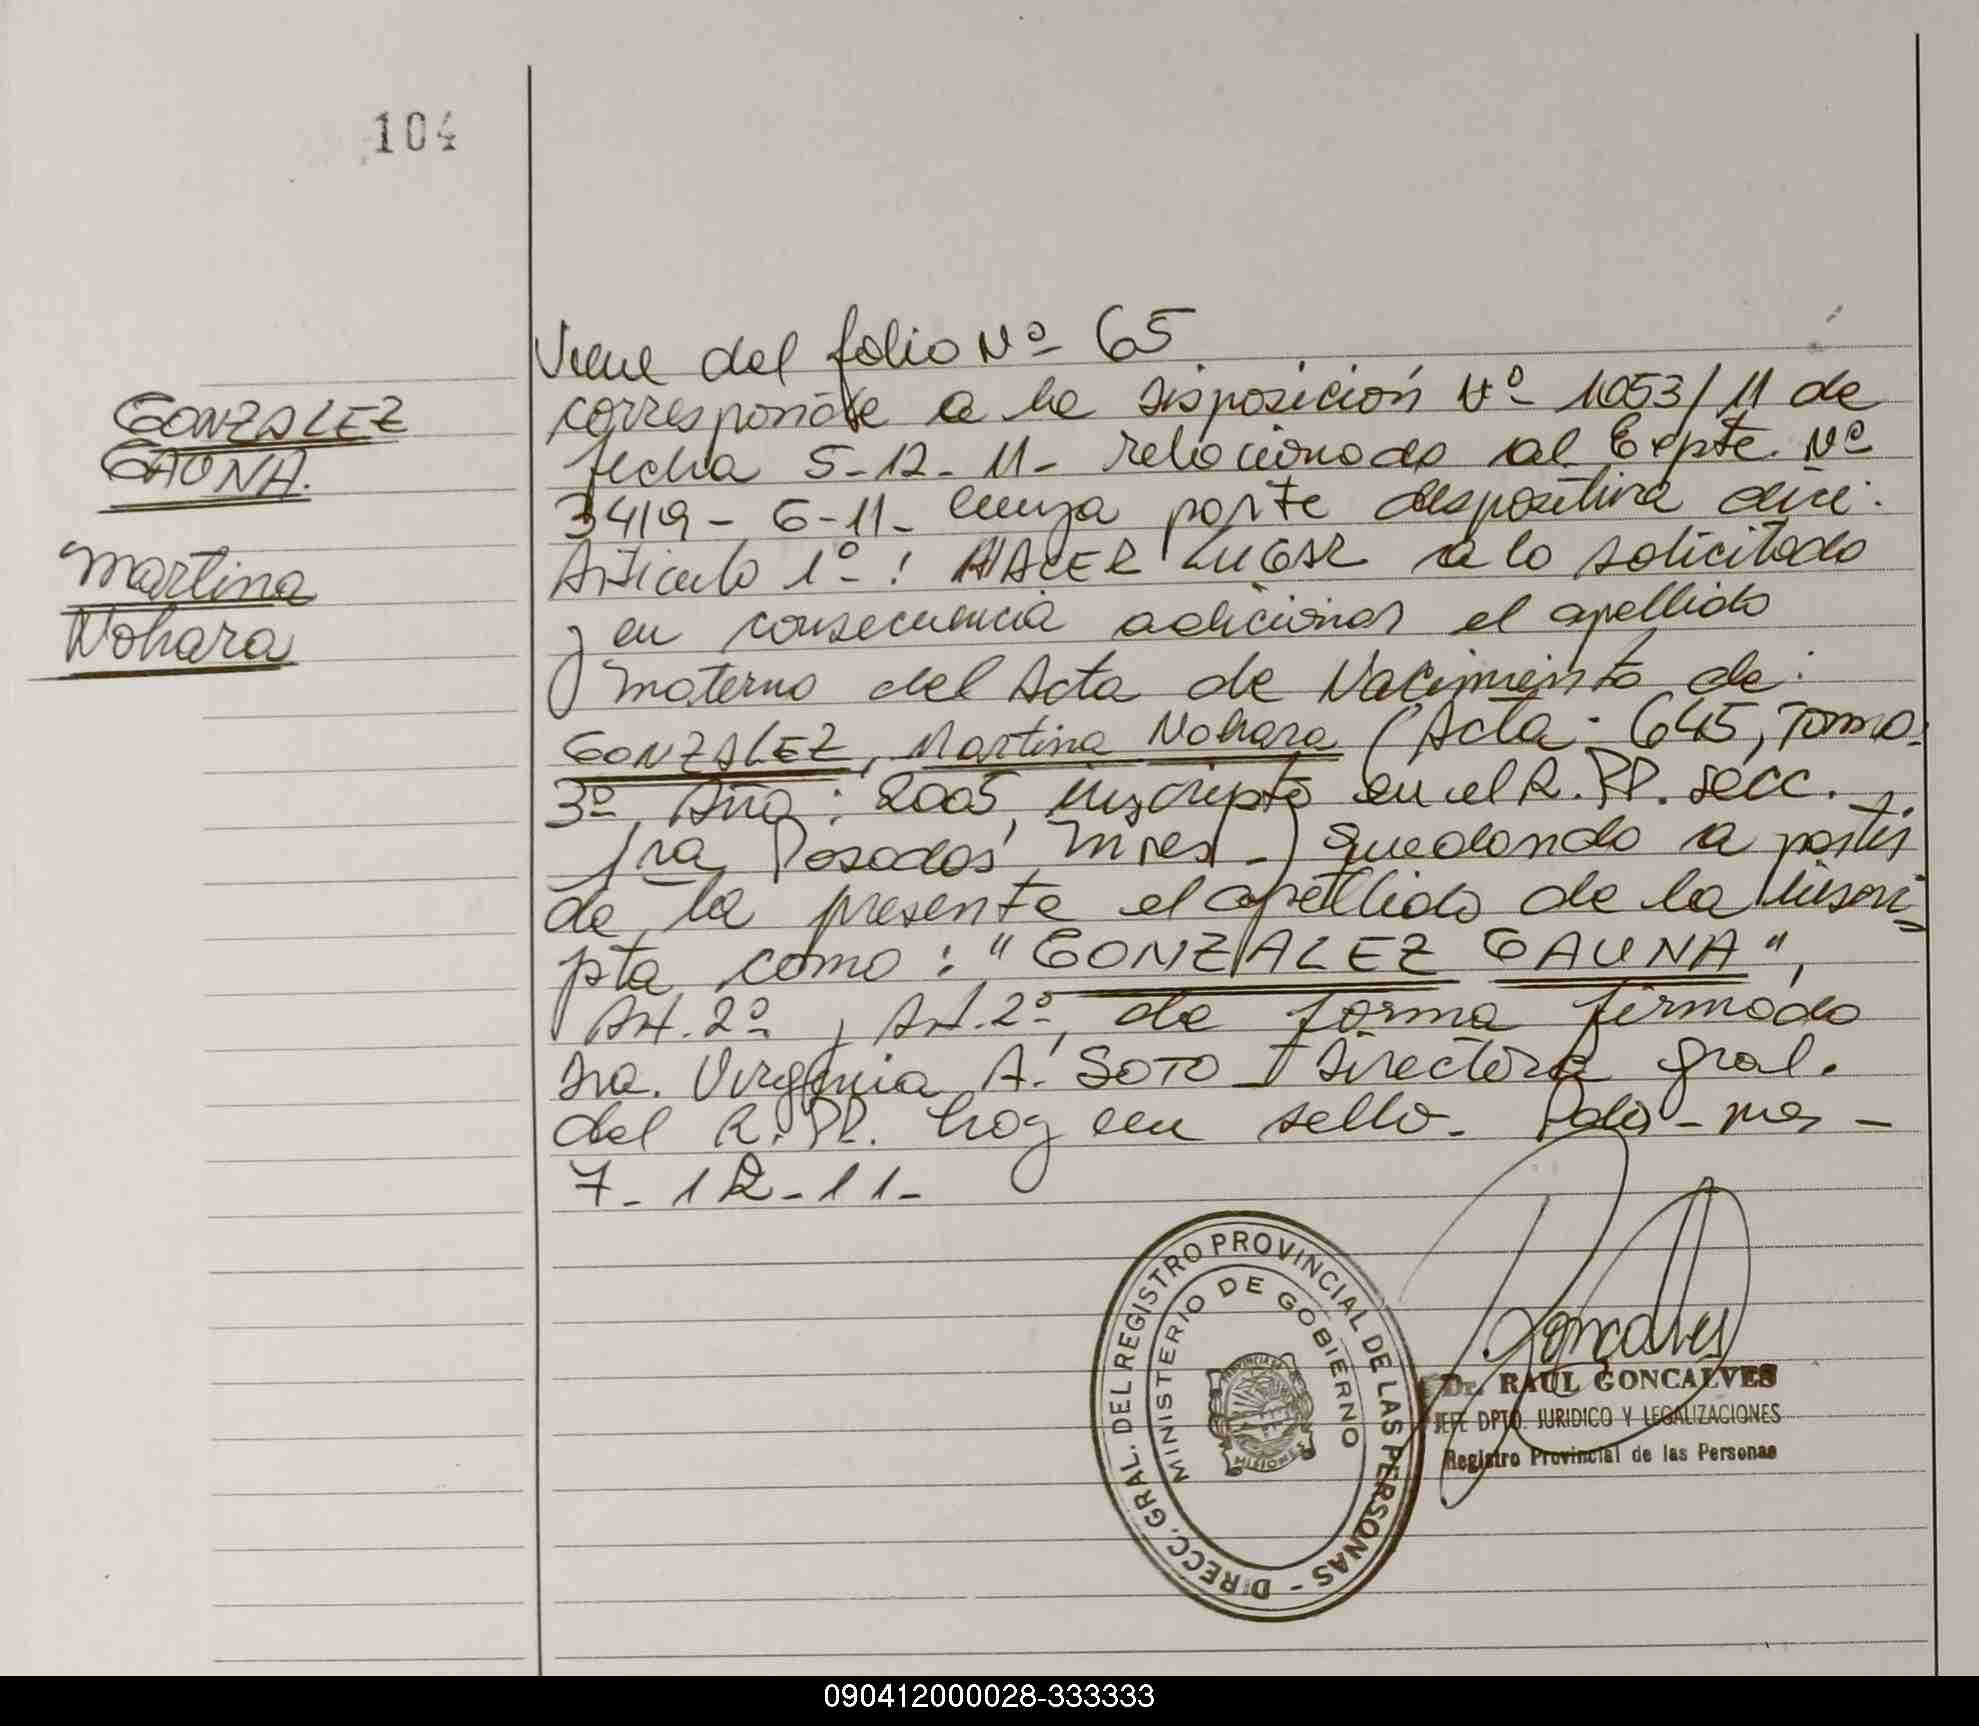 104
GONZALEZ
GAUNA.
Martina
Nohara
Viene del folio Nº 65
corresponde a la Disposición Nº 1053/11 de
fecha 5-12-11- relacionado al Expte. Nº
3419-6-11- cuya parte dispositiva dice:
Artículo 1º: HACER LUGAR a lo solicitado
y en consecuencia adicionar el apellido
materno del Acta de Nacimiento de:
GONZALEZ, Martina Nohara (Acta: 645, Tomo:
3º, Año: 2005, inscripto en el R.PP. secc.
1ra Posadas, Mnes-) quedando a partir
de la presente el apellido de la inscri-
pta como: "GONZALEZ GAUNA",
Art. 2º, Art. 2º, de forma firmado
Sra. Virginia A. SOTO - Directora Gral.
del R.PP. hay un sello. Pdas-mes-
7-12-11-
DIRECC. GRAL. DEL REGISTRO PROVINCIAL DE LAS PERSONAS -
MINISTERIO DE GOBIERNO
PROVINCIA DE
MISIONES
Goncalves
Dr. RAUL GONCALVES
JEFE DPTO. JURIDICO Y LEGALIZACIONES
Registro Provincial de las Personas
090412000028-333333